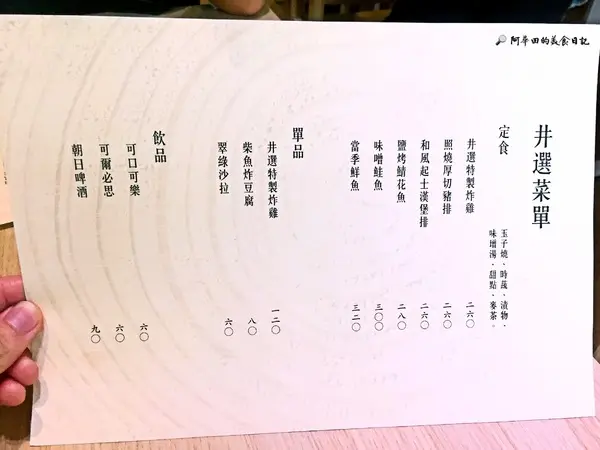 阿華田的美食日記
井選菜單
定食
玉子燒、時蔬、漬物、
味增湯、甜點、麥茶。
井選特製炸雞 二六〇
照燒厚切豬排 二六〇
和風起士漢堡排 二六〇
鹽烤鯖花魚 二八〇
味噌鮭魚 三〇〇
當季鮮魚 三二〇
單品
井選特製炸雞 一二〇
柴魚炸豆腐 八〇
翠綠沙拉 六〇
飲品
可口可樂 六〇
可爾必思 六〇
朝日啤酒 九〇